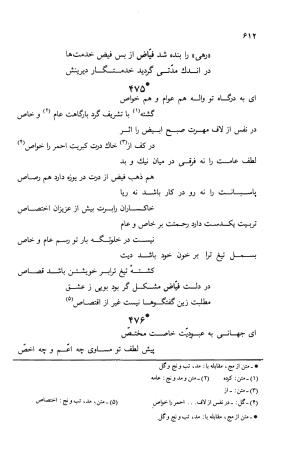 ۶۱۲
«رهی» را بنده شد فیّاض از بس فیض خدمت‌ها
در اندك مدّتی گردید خدمتـگـار دیرینش
*۴۷۵
ای به درگاه تو والـه هم عوام و هم خواص
گشته(۱) با تشریف گرد بارگاهت عام(۲) و خاص
در نفس از لاف مهرت صبح ابیض را اثر
در کف از(۳) خاك درت کبریت احمر را خواص(۴)
لطف عامت را نه فرقی در میان نیك و بد
هم ذهب فیض از درت در یوزه دارد هم رصاص
پاسبانت را نه رو در کار باشد نه ریا
خاکساران رابرت بیش از عزیزان اختصاص
تربیت یکدست دارد رحمتت بر خاص و عام
نیست در خلوتگه بار تو رسم عام و خاص
بسمل تیغ ترا بر خون خود باشد دیت
کشتهٔ تیغ ترابر خویشتن باشد قصاص
در دلت فیّاض مشکل گر بود بویی ز عشق
مطلبت زین گفتگوها نیست غیر از اقتصاص(۵)
*۴۷۶
ای جهانی به عبودیّت خاصت مختصّ
پیش لطف تو مساوی چه اعّم و چه اخصّ
* ـ متن از مج، مقابله با: مد، تب و نچ و گل.
(۱) ـ متن: کرده (۲) ـ متن و مد و نچ: عامه
(۳) ـ متن: ـ از
(۴) ـ گل: ـ در نفس از لاف... احمر را خواص (۵) ـ متن، مد، تب و نچ: اختصاص
* ـ متن از مج، مقابله با: مد، تب و نچ و گل.